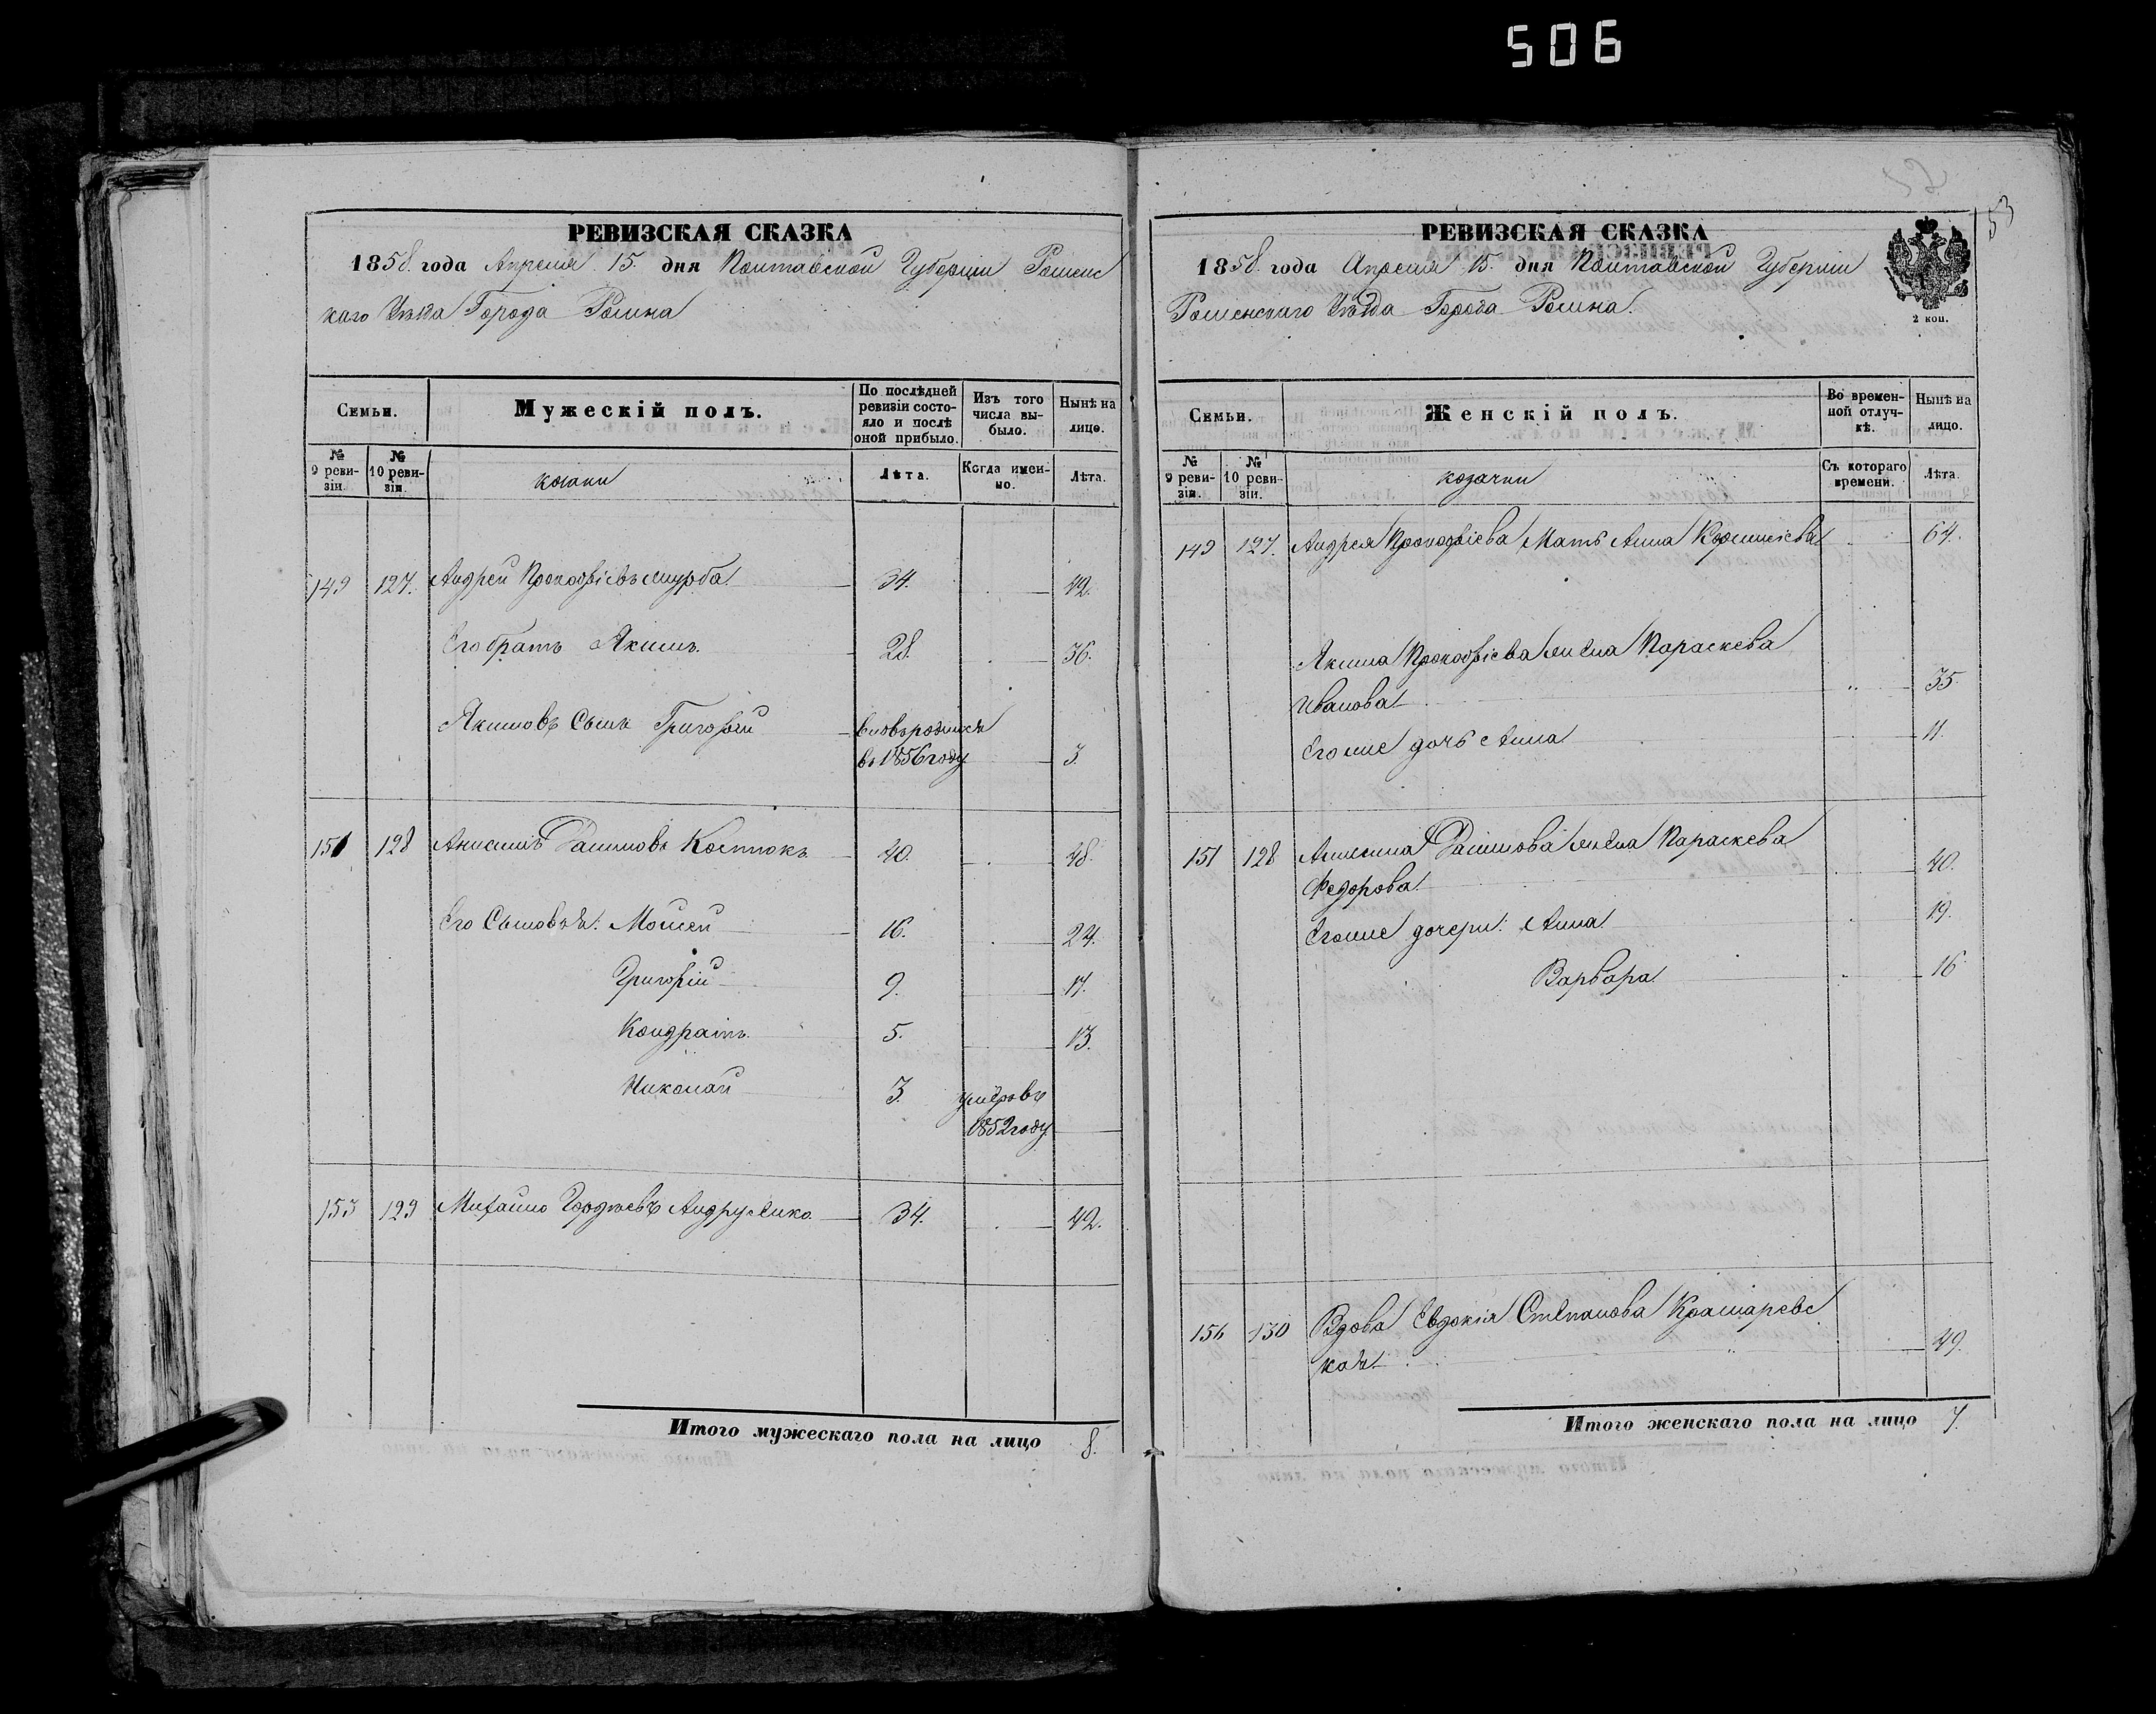 506
53
РЕВИЗСКАЯ СКАЗКА
1858. года Апреля 15. дня Полтавской Губерніи Роменс
каго Уѣзда Города Ромна
Семьи.
Мужескій полъ.
По послѣдней ревизіи состояло и послѣ оной прибыло.
Изъ того числа выбыло.
Нынѣ на лицо.
№ 9 ревизіи.
№ 10 ревизіи.
козаки
Лѣта.
Когда именно.
Лѣта.
149 127. Андрей Прокофіевъ 34. 42.
Его братъ Акимъ. 28. 36.
Акимовъ Сынъ Григорій вновьродился
въ 1856 году 3.
151 128 Анисимъ Костюкъ 40. 48.
Его Сыновья: Мойсей 16. 24.
Григорій 9. 17.
Кондратъ 5. 13.
Николай 3. умеръ въ
1852 году
153 129 Михайло Гордѣевъ Андрусенко 34. 42.
Итого мужескаго пола на лицо 8.
РЕВИЗСКАЯ СКАЗКА
1858. года Апреля 15. дня Полтавской Губерніи
Роменскаго Уѣзда Города Ромна.
2 коп.
Семьи.
Женскій полъ.
Во временной отлучкѣ.
Нынѣ на лицо.
№ 9 ревизіи.
№ 10 ревизіи.
козачки
Съ котораго времени.
Лѣта.
149 127. Андрея Прокофіева Мать Анна 64.
Акима Прокофіева жена Параскева
Иванова 35.
Его же дочь Анна 11.
151 128 Анисима жена Параскева
Федорова 40.
Его же дочери: Анна 19.
Варвара 16.
156 130 Вдова Евдокія Степанова Крамаревс
кая 49.
Итого женскаго пола на лицо 7.